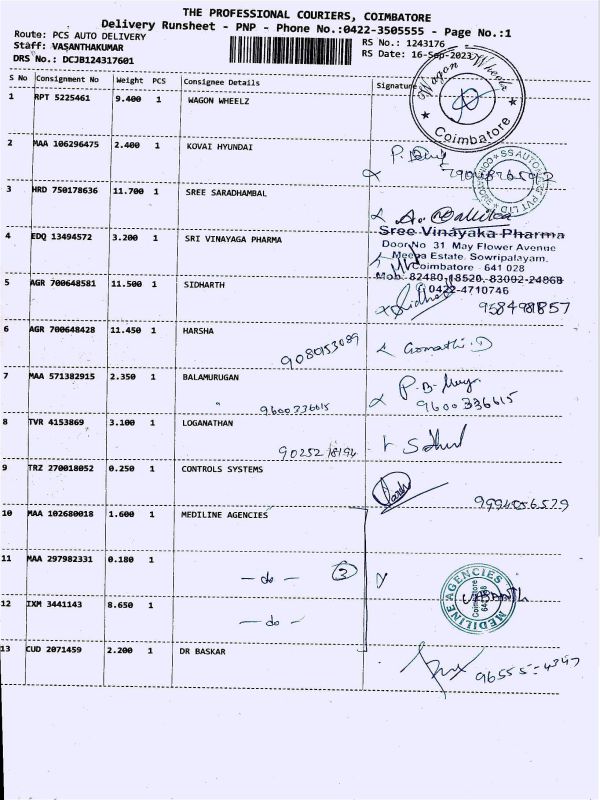 THE PROFESSIONAL COURIERS, COIMBATORE
Delivery Runsheet - PNP - Phone No.:0422-3505555 - Page No.:1
Route: PCS AUTO DELIVERY
RS No.: 1243176
Staff: VASANTHAKUMAR
RS Date: 16-Sep-2023
DRS No.: DCJB124317601
S No Consignment No Weight PCS Consignee Details Signature
Wagon Wheelz
Coimbatore
1 RPT 5225461 9.400 1 WAGON WHEELZ
2 MAA 106296475 2.400 1 KOVAI HYUNDAI
3 HRD 750178636 11.700 1 SREE SARADHAMBAL
4 EDQ 13494572 3.200 1 SRI VINAYAGA PHARMA
Sree Vinayaka Pharma
Door No 31 May Flower Avenue
Meena Estate. Sowripalayam.
Coimbatore - 641 028
Mob: 82480-18520, 83092-24868
0422-4710746
5 AGR 700648581 11.500 1 SIDHARTH
Sidharth 9584981857
6 AGR 700648428 11.450 1 HARSHA
9080953089 Gomathi.D
7 MAA 571382915 2.350 1 BALAMURUGAN
9600336615 9600336615
8 TVR 4153869 3.100 1 LOGANATHAN
9025218194
9 TRZ 270018052 0.250 1 CONTROLS SYSTEMS
9994056529
10 MAA 102680018 1.600 1 MEDILINE AGENCIES
11 MAA 297982331 0.180 1
- do - 3
12 IXM 3441143 8.650 1
- do -
MEDILINE AGENCIES
Coimbatore
13 CUD 2071459 2.200 1 DR BASKAR